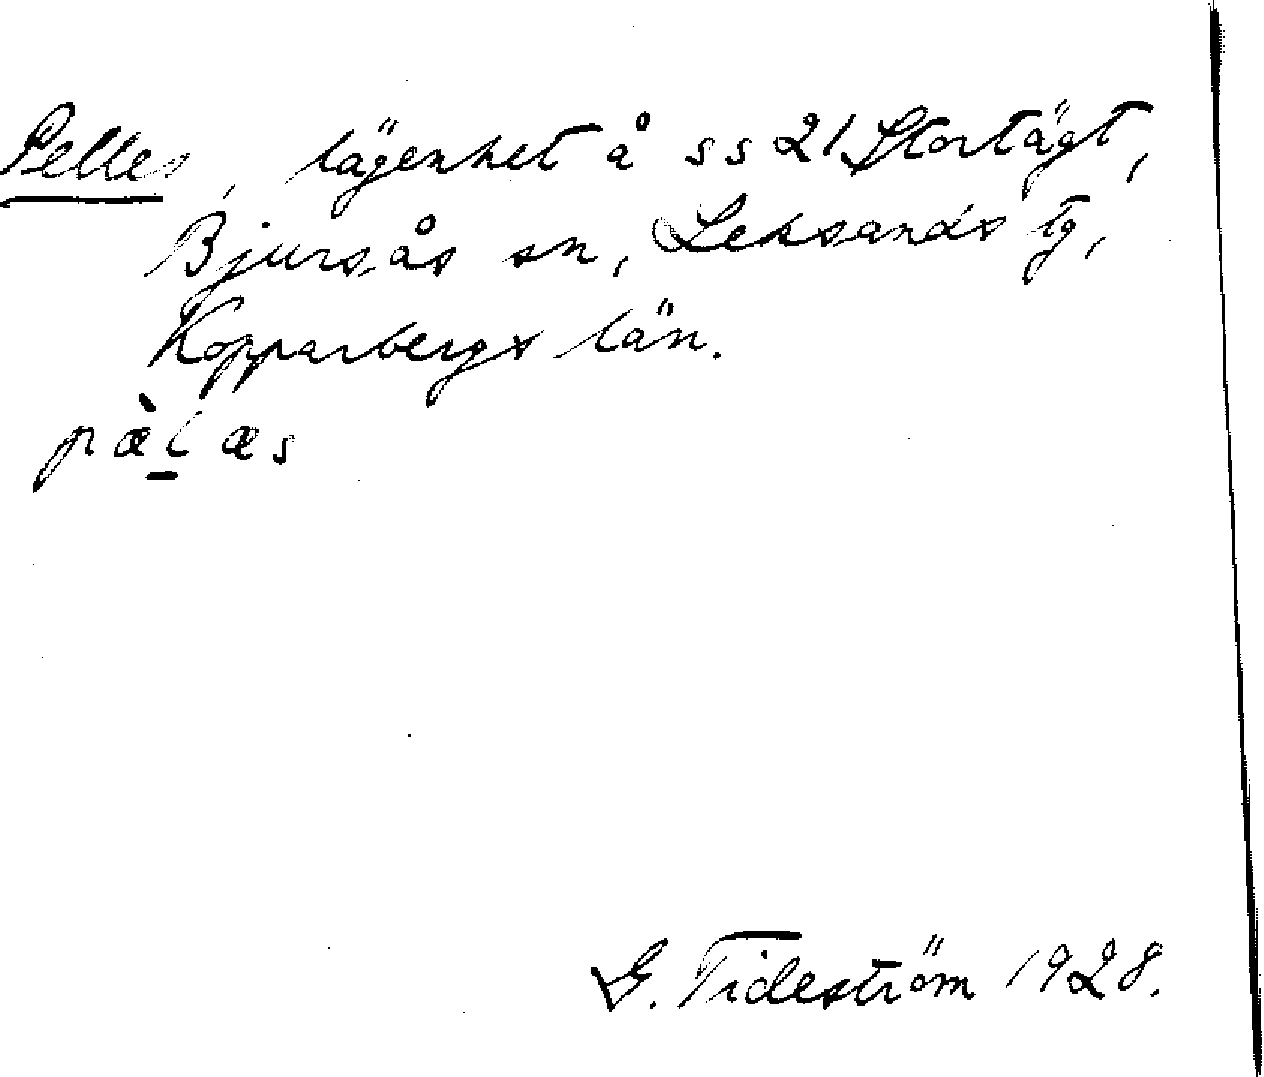 Pelles, lägenhet å ss 21 Stortägt,
Bjursås sn, Leksands tg,
Kopparbergs län.
pæ̀l̠æs
G. Tideström 1928.